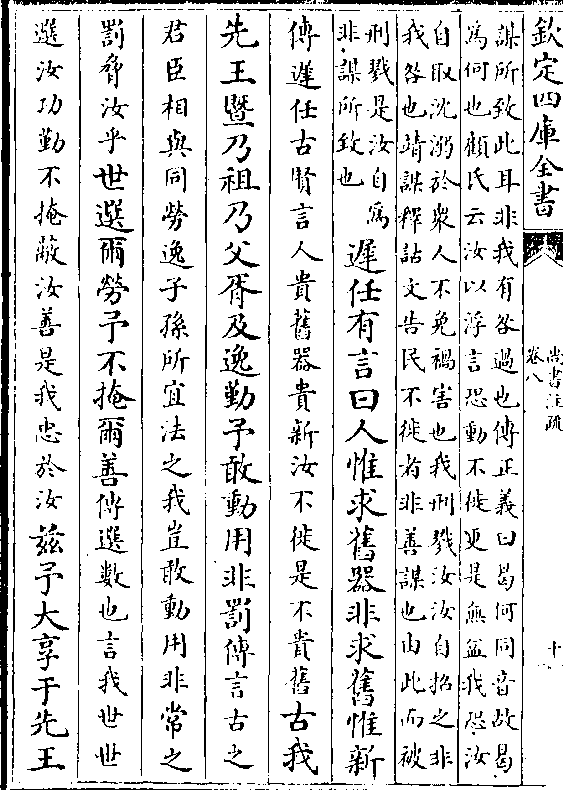 欽定四庫全書
尚書注疏
卷八
十
謀所致此耳非我有咎過也傳正義曰曷何同音故曷
為何也顧氏云汝以浮言恐動不徙更是無益我恐汝
自取沈溺於衆人不免禍害也我刑戮汝汝自招之非
我咎也靖謀釋詁文告民不徙者非善謀也由此而被
刑戮是汝自為
非謀所致也
遲任有言曰人惟求舊器非求舊惟新
傳遲任古賢言人貴舊器貴新汝不徙是不貴舊古我
先王暨乃祖乃父胥及逸勤予敢動用非罰傳言古之
君臣相與同勞逸子孫所宜法之我豈敢動用非常之
罰脅汝乎世選爾勞予不掩爾善傳選數也言我世世
選汝功勤不掩蔽汝善是我忠於汝茲予大享于先王